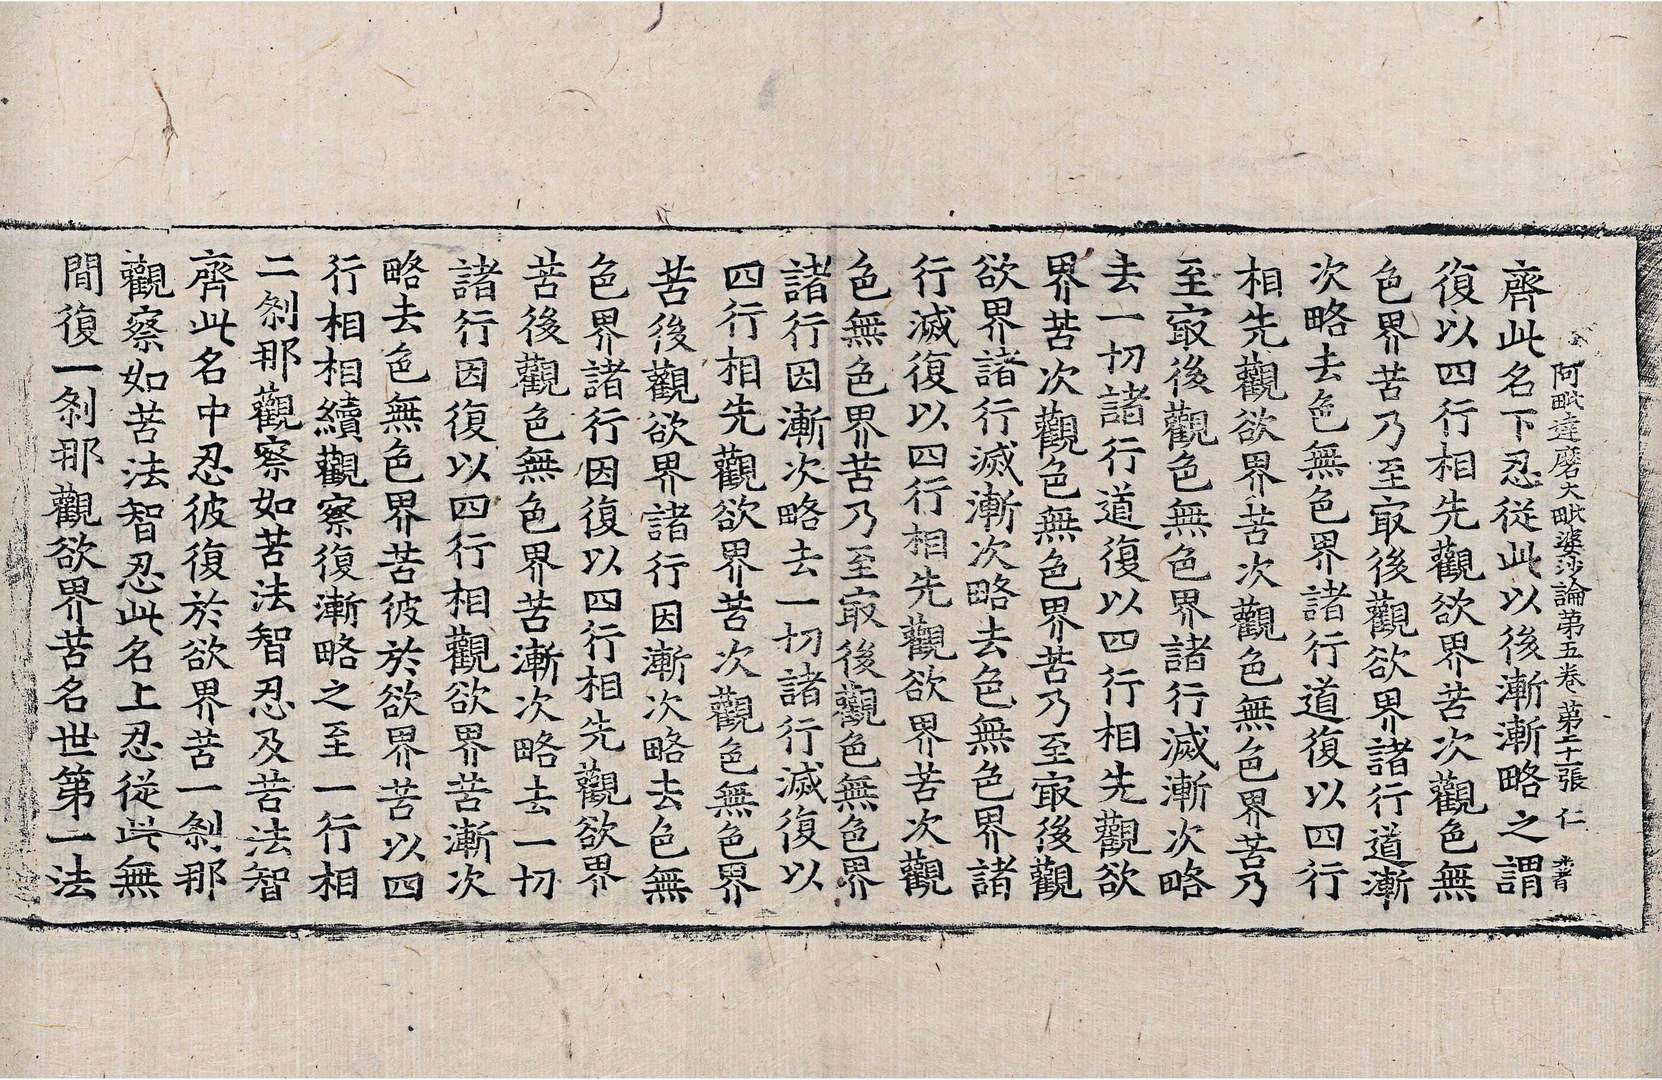 阿毗達磨大毗婆沙論第五卷 第二十張 仁
齊此名下忍從此以後漸漸略之謂
復以四行相先觀欲界苦次觀色無
色界苦乃至㝡後觀欲界諸行道漸
次略去色無色界諸行道復以四行
相先觀欲界苦次觀色無色界苦乃
至㝡後觀色無色界諸行滅漸次略
去一切諸行道復以四行相先觀欲
界苦次觀色無色界苦乃至㝡後觀
欲界諸行滅漸次略去色無色界諸
行滅復以四行相先觀欲界苦次觀
色無色界苦乃至㝡後觀色無色界
諸行因漸次略去一切諸行滅復以
四行相先觀欲界苦次觀色無色界
苦後觀欲界諸行因漸次略去色無
色界諸行因復以四行相先觀欲界
苦後觀色無色界苦漸次略去一切
諸行因復以四行相觀欲界苦漸次
略去色無色界苦彼於欲界苦以四
行相相續觀察復漸略之至一行相
二剎那觀察如苦法智忍及苦法智
齊此名中忍彼復於欲界苦一剎那
觀察如苦法智忍此名上忍從此無
間復一剎那觀欲界苦名世第一法